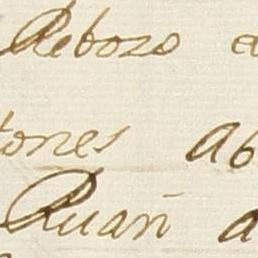 Rebozo a
tones Ab
Ruan a